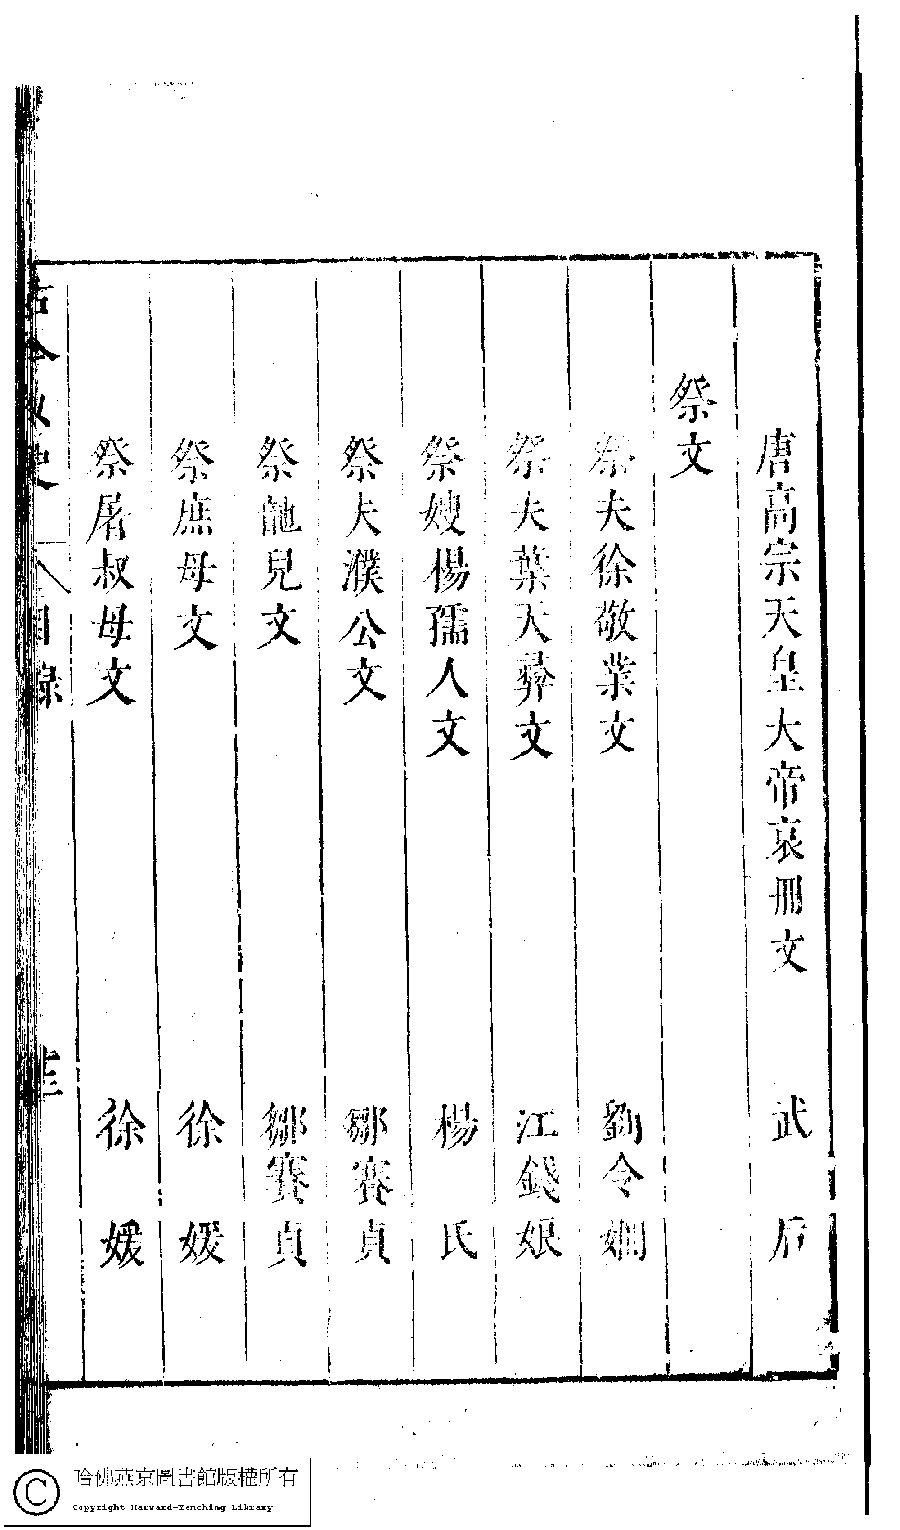 唐高宗天皇大帝哀冊文 武后
祭文
祭夫徐敬業文 劉令嫻
祭夫葉天彛文 江錢娘
祭嫂楊孺人文 楊氏
祭夫濮公文 鄒賽貞
祭龀兒文 鄒賽貞
祭庶母文 徐媛
祭屠叔母文 徐媛
古今女史 目錄
哈佛燕京圖書館版權所有
Copyright Harvard-Yenching Library